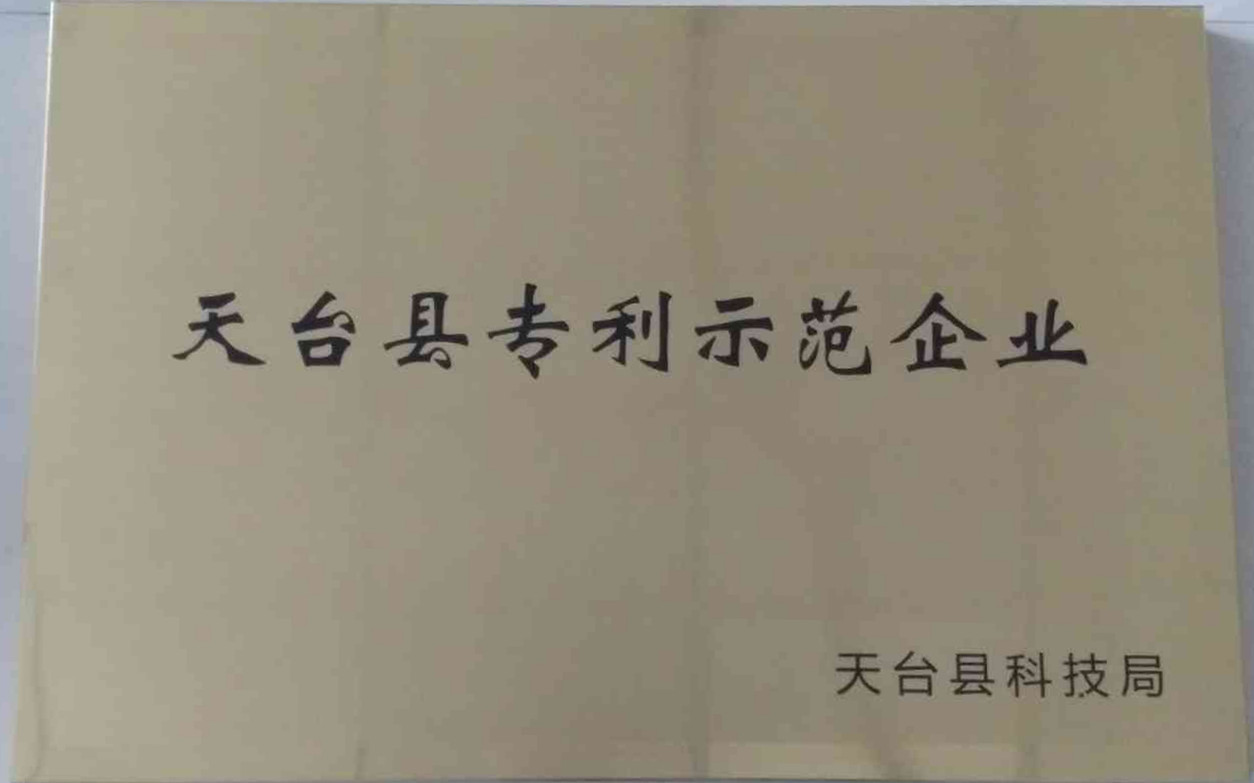 天台县专利示范企业
天台县科技局